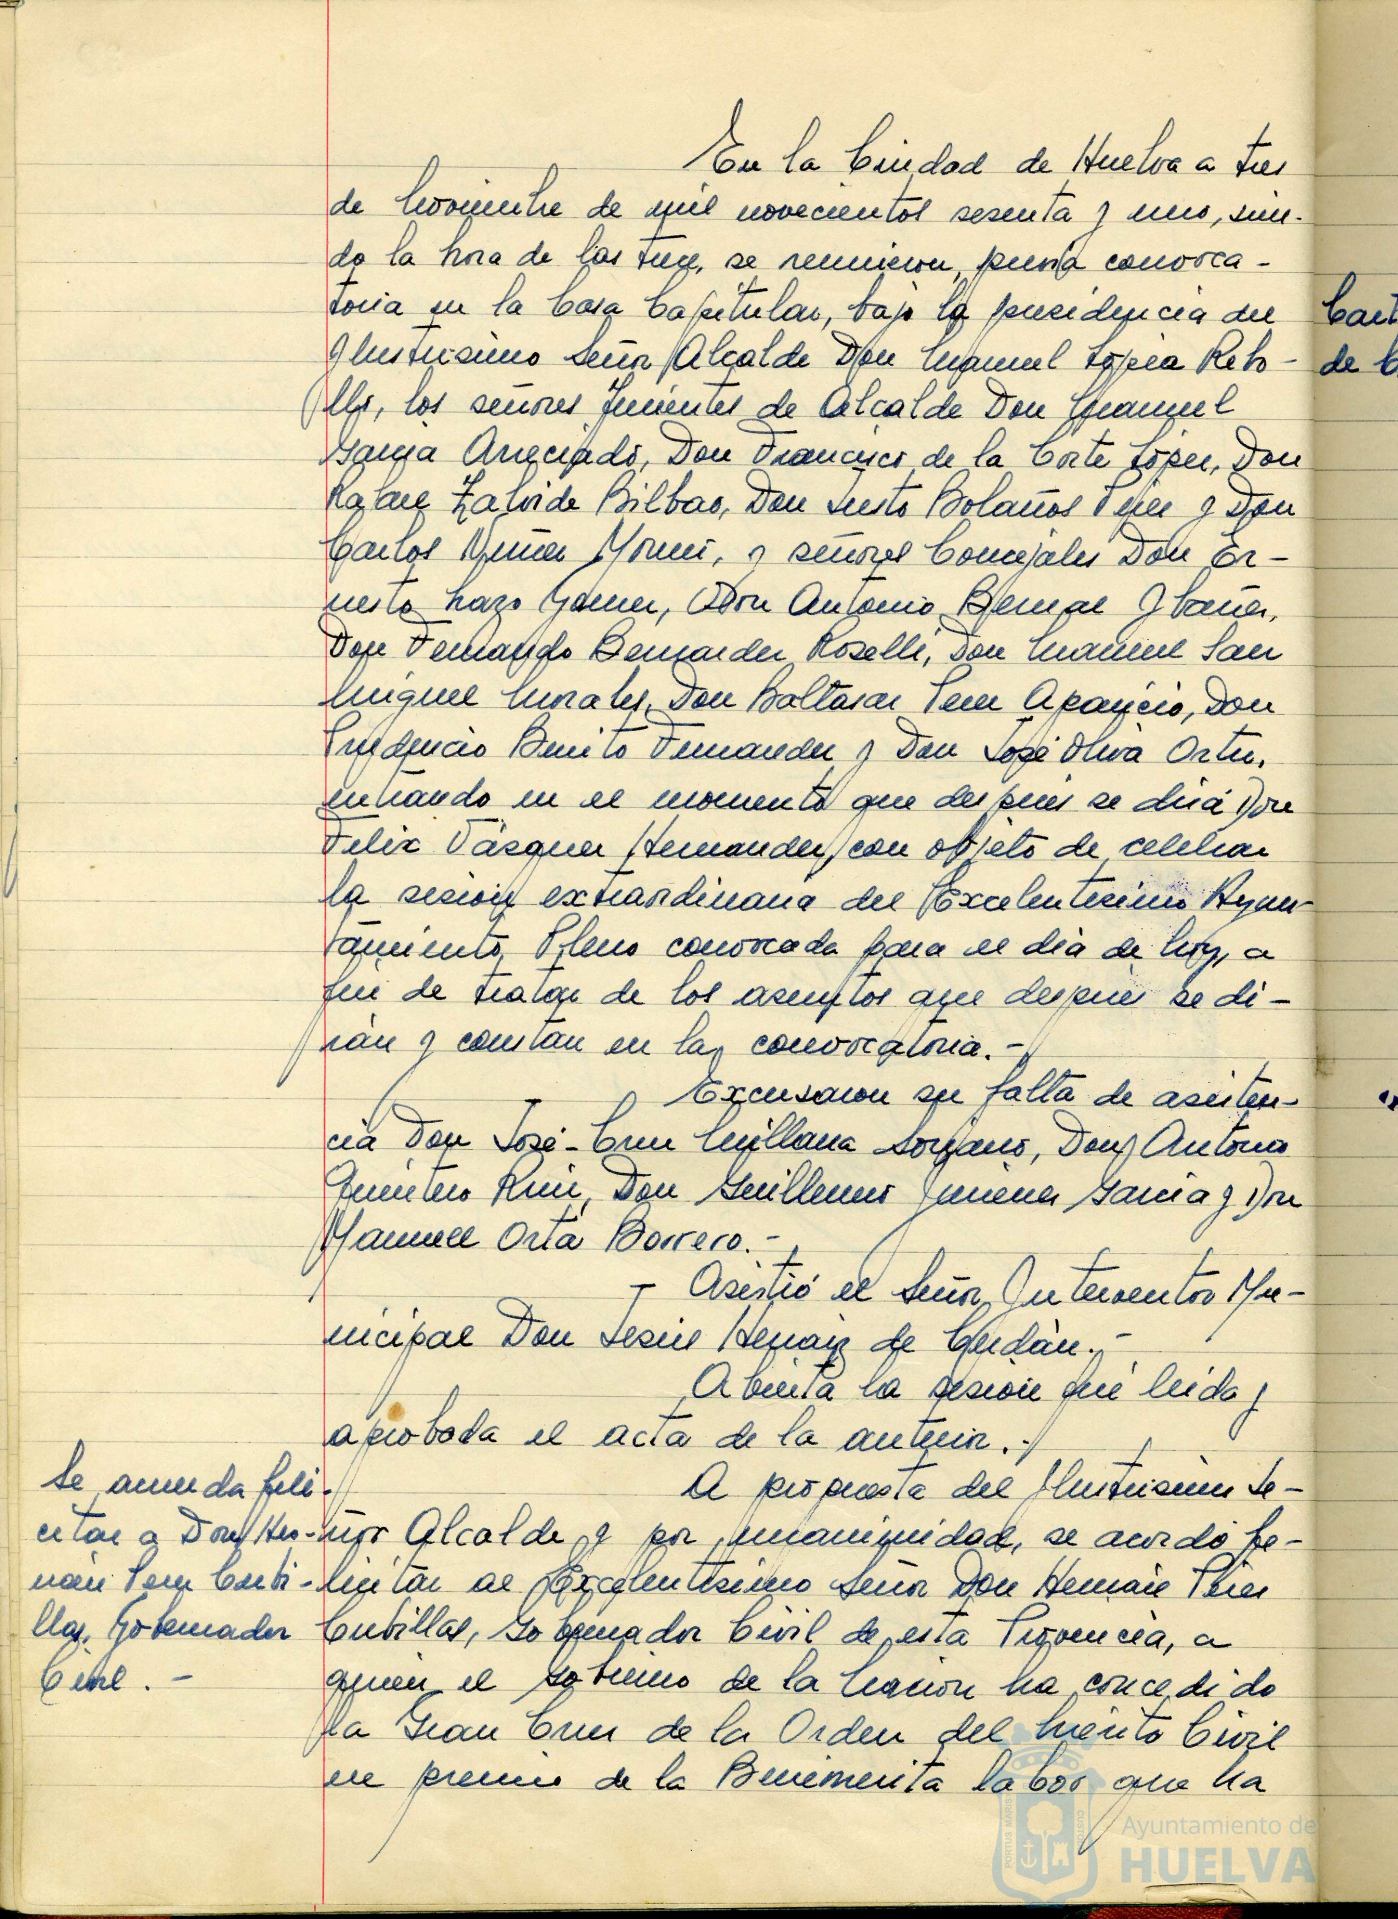 En la Ciudad de Huelva a tres
de Noviembre de mil novecientos sesenta y uno, sien-
do la hora de las trece, se reunieron, previa convoca-
toria en la Casa Capitular, bajo la presidencia del
Ilustrísimo Señor Alcalde Don Manuel López Rebo-
llo, los señores Tenientes de Alcalde Don Manuel
García Arreciado, Don Francisco de la Corte López, Don
Rafael Zalvide Bilbao, Don Justo Bolaños Pérez y Don
Carlos Núñez Moreno, y señores Concejales Don Er-
nesto Lazo Gómez, Don Antonio Bernal Ibáñez,
Don Fernando Bernardez Roselli, Don Manuel San
Miguel Morales, Don Baltasar Pérez Aparicio, Don
Prudencio Benito Fernandez y Don José Oliva Ortiz,
entrando en el momento que despues se dirá Don
Felix Vásquez Hernandez, con objeto de celebrar
la sesión extraordinaria del Excelentísimo Ayun-
tamiento Pleno convocada para el día de hoy, a
fin de tratar de los asuntos que despues se di-
rán y constan en la convocatoria.-
Excusaron su falta de asisten-
cia Don José-Cruz Millana Soriano, Don Antonio
Quintero Ruiz, Don Guillermo Jimenez García y Don
Manuel Orta Borrero.-
- Asistió el Señor Interventor Mu-
nicipal Don Jesús Hernaiz de Guidán.-
Abierta la sesión fué leída y
aprobada el acta de la anterior.-
Se acuerda feli-
citar a Don Her-
nán Perez Cubi-
llas, Gobernador
Civil.-
A propuesta del Ilustrísimo Se-
ñor Alcalde y por unanimidad, se acordó fe-
licitar al Excelentísimo Señor Don Hernán Pérez
Cubillas, Gobernador Civil de esta Provincia, a
quien el Gobierno de la Nación ha concedido
la Gran Cruz de la Orden del Mérito Civil
en premio de la Benemérita labor que ha
de
Ayuntamiento de
HUELVA